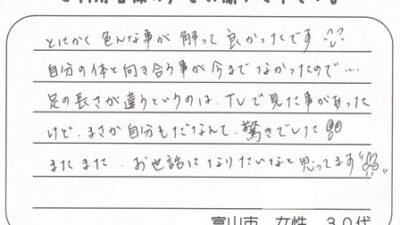 とにかく色んな事が解って良かったです
自分の体と向き合う事が今までなかったので…
足の長さが違うというのは、TVで見た事があった
けど、まさか自分もだなんて、驚きでした!!
またまた、お世話になりたいなと思ってます
富山市 女性 30代